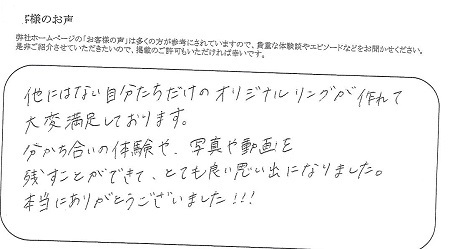 様のお声
弊社ホームページの「お客様の声」は多くの方が参考にされていますので、貴重な体験談やエピソードなどをお聞かせください。
是非ご紹介させていただきたいので、掲載のご許可もいただければ幸いです。
他にはない自分たちだけのオリジナルリングが作れて
大変満足しております。
分かち合いの体験や、写真や動画を
残すことができて、とても良い思い出になりました。
本当にありがとうございました!!!